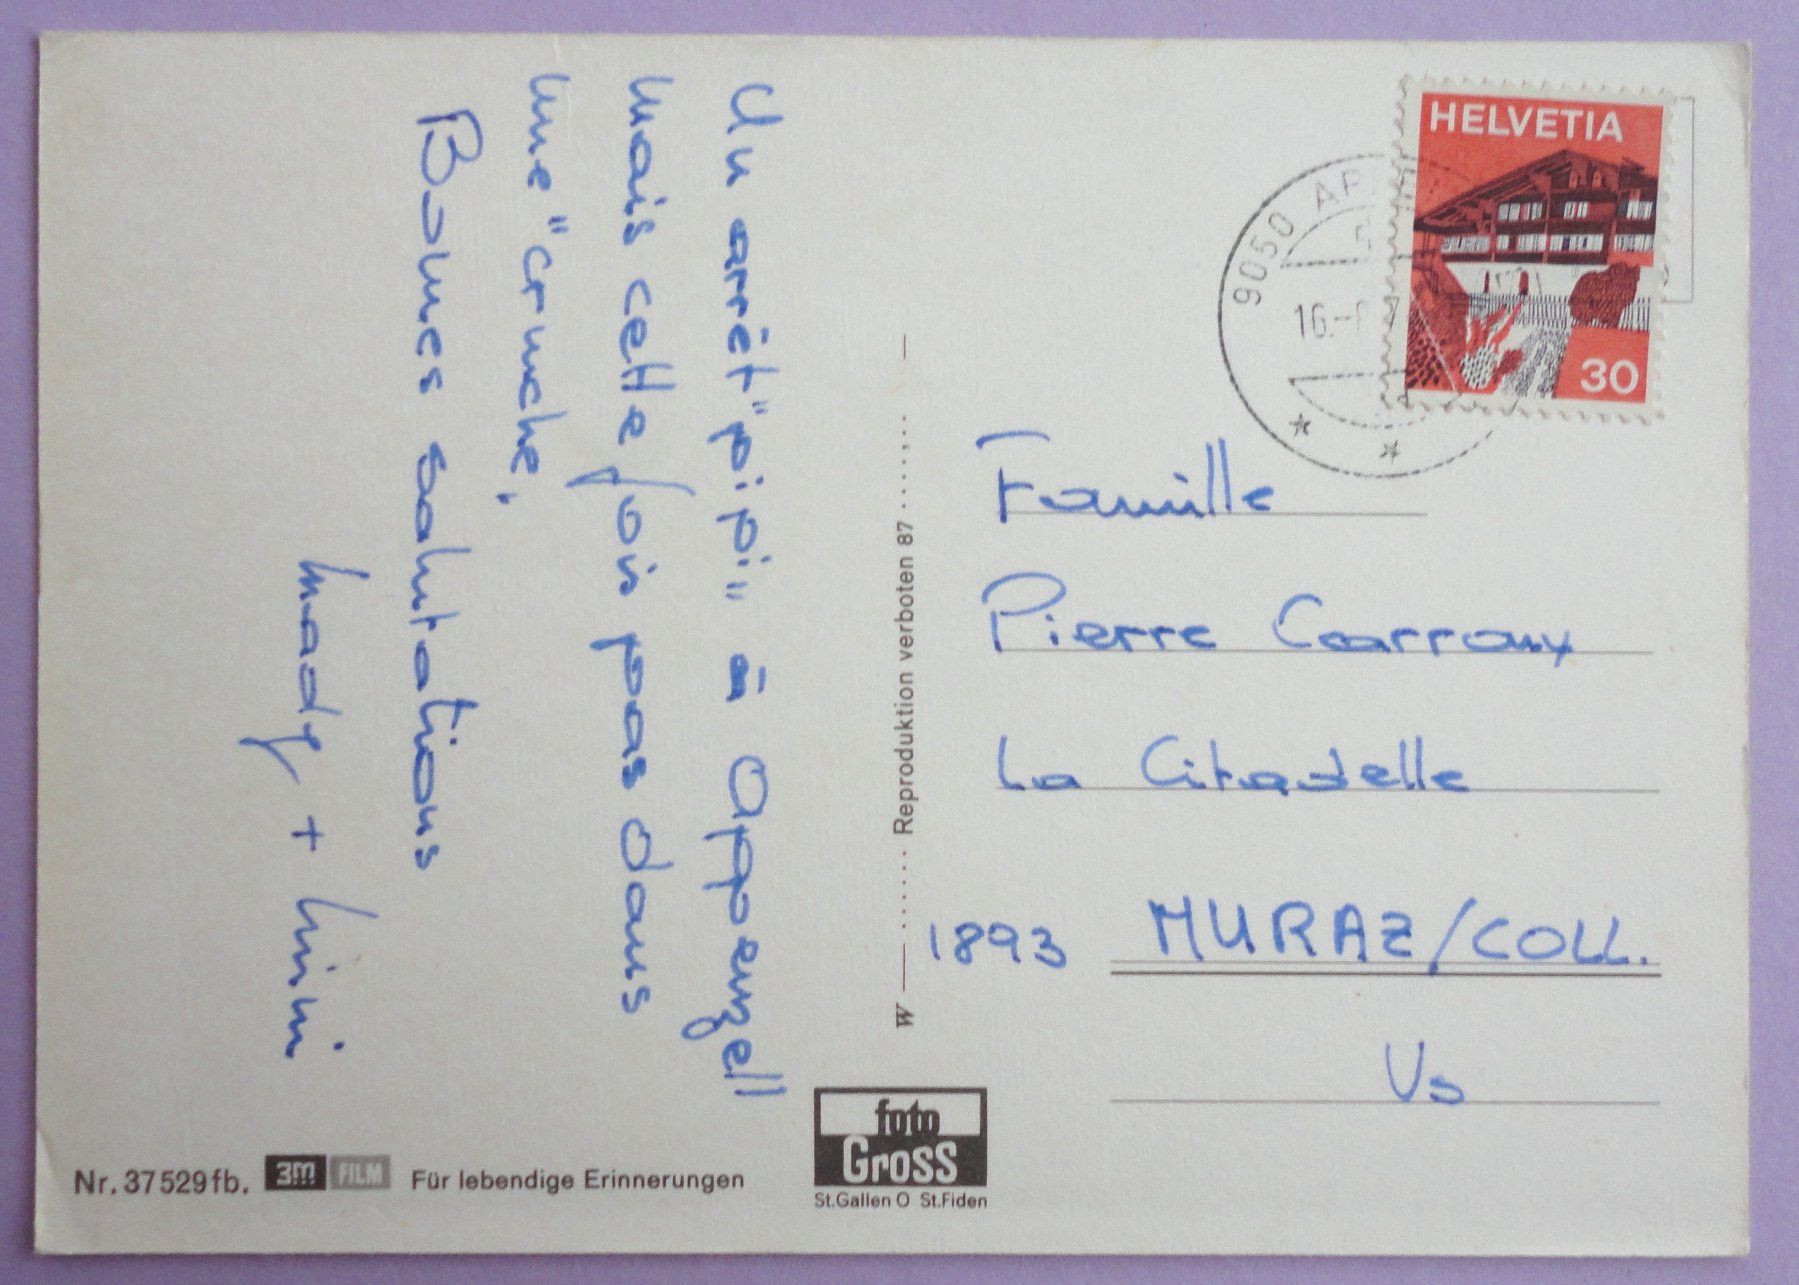 Un arrêt "pipi" à Appenzell
mais cette fois pas dans
une "cruche".
Bonnes salutations
Mady + Mimi
HELVETIA
30
9050 AP
16.-
Famille
Pierre Carraux
La Citadelle
1893 MURAZ/COLL.
Vs
W — ...... Reproduktion verboten 87 ......, .. —
foto
Gross
St.Gallen O St.Fiden
Nr. 37529fb. 3M FILM Für lebendige Erinnerungen